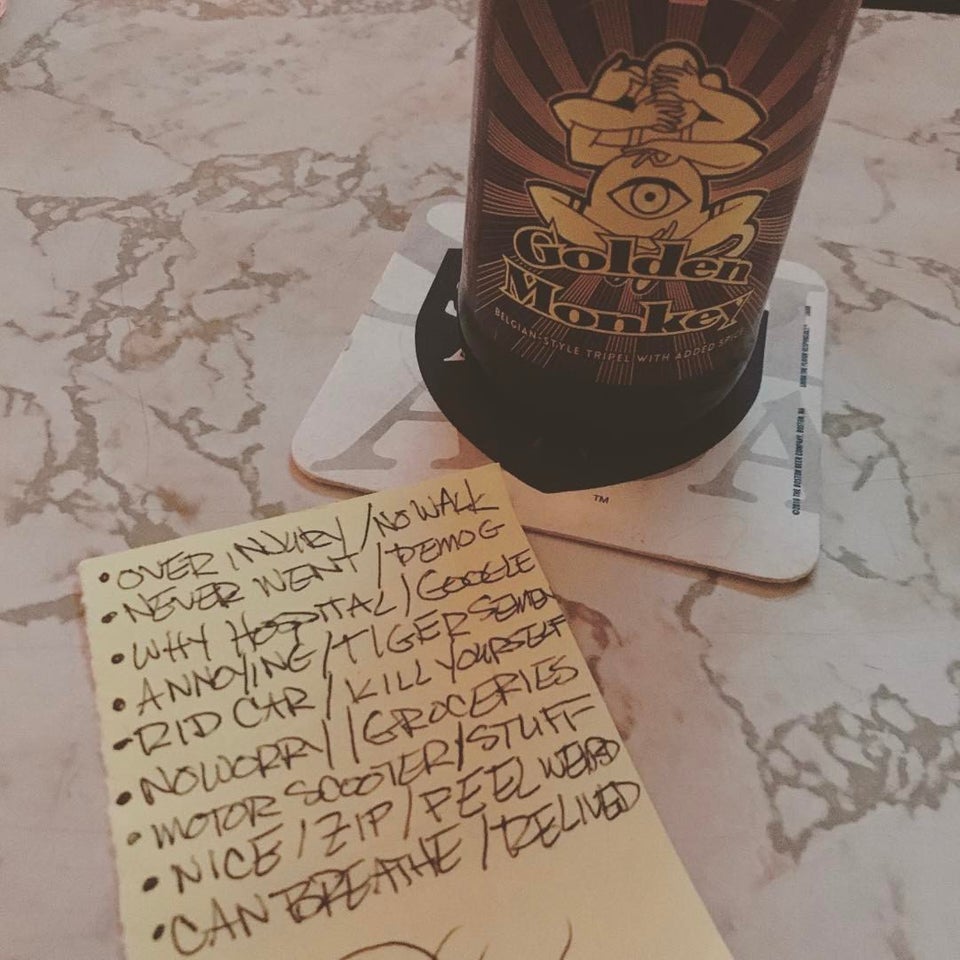 Golden
Monkey
BELGIAN-STYLE TRIPEL WITH ADDED
A
A
TM
©2016 THE BOSTON BEER COMPANY, BOSTON, MA
• OVER INJURY/NO WALK
• NEVER WENT/DEMOG
• WHY HOSPITAL/GOOGLE
• ANNOYING/TIGER SEMEN
• RID CAR/KILL YOURSELF
• NO WORRY//GROCERIES
• MOTOR SCOOTER/STUFF
• NICE/ZIP/FEEL WEIRD
• CAN BREATHE/RELIVED